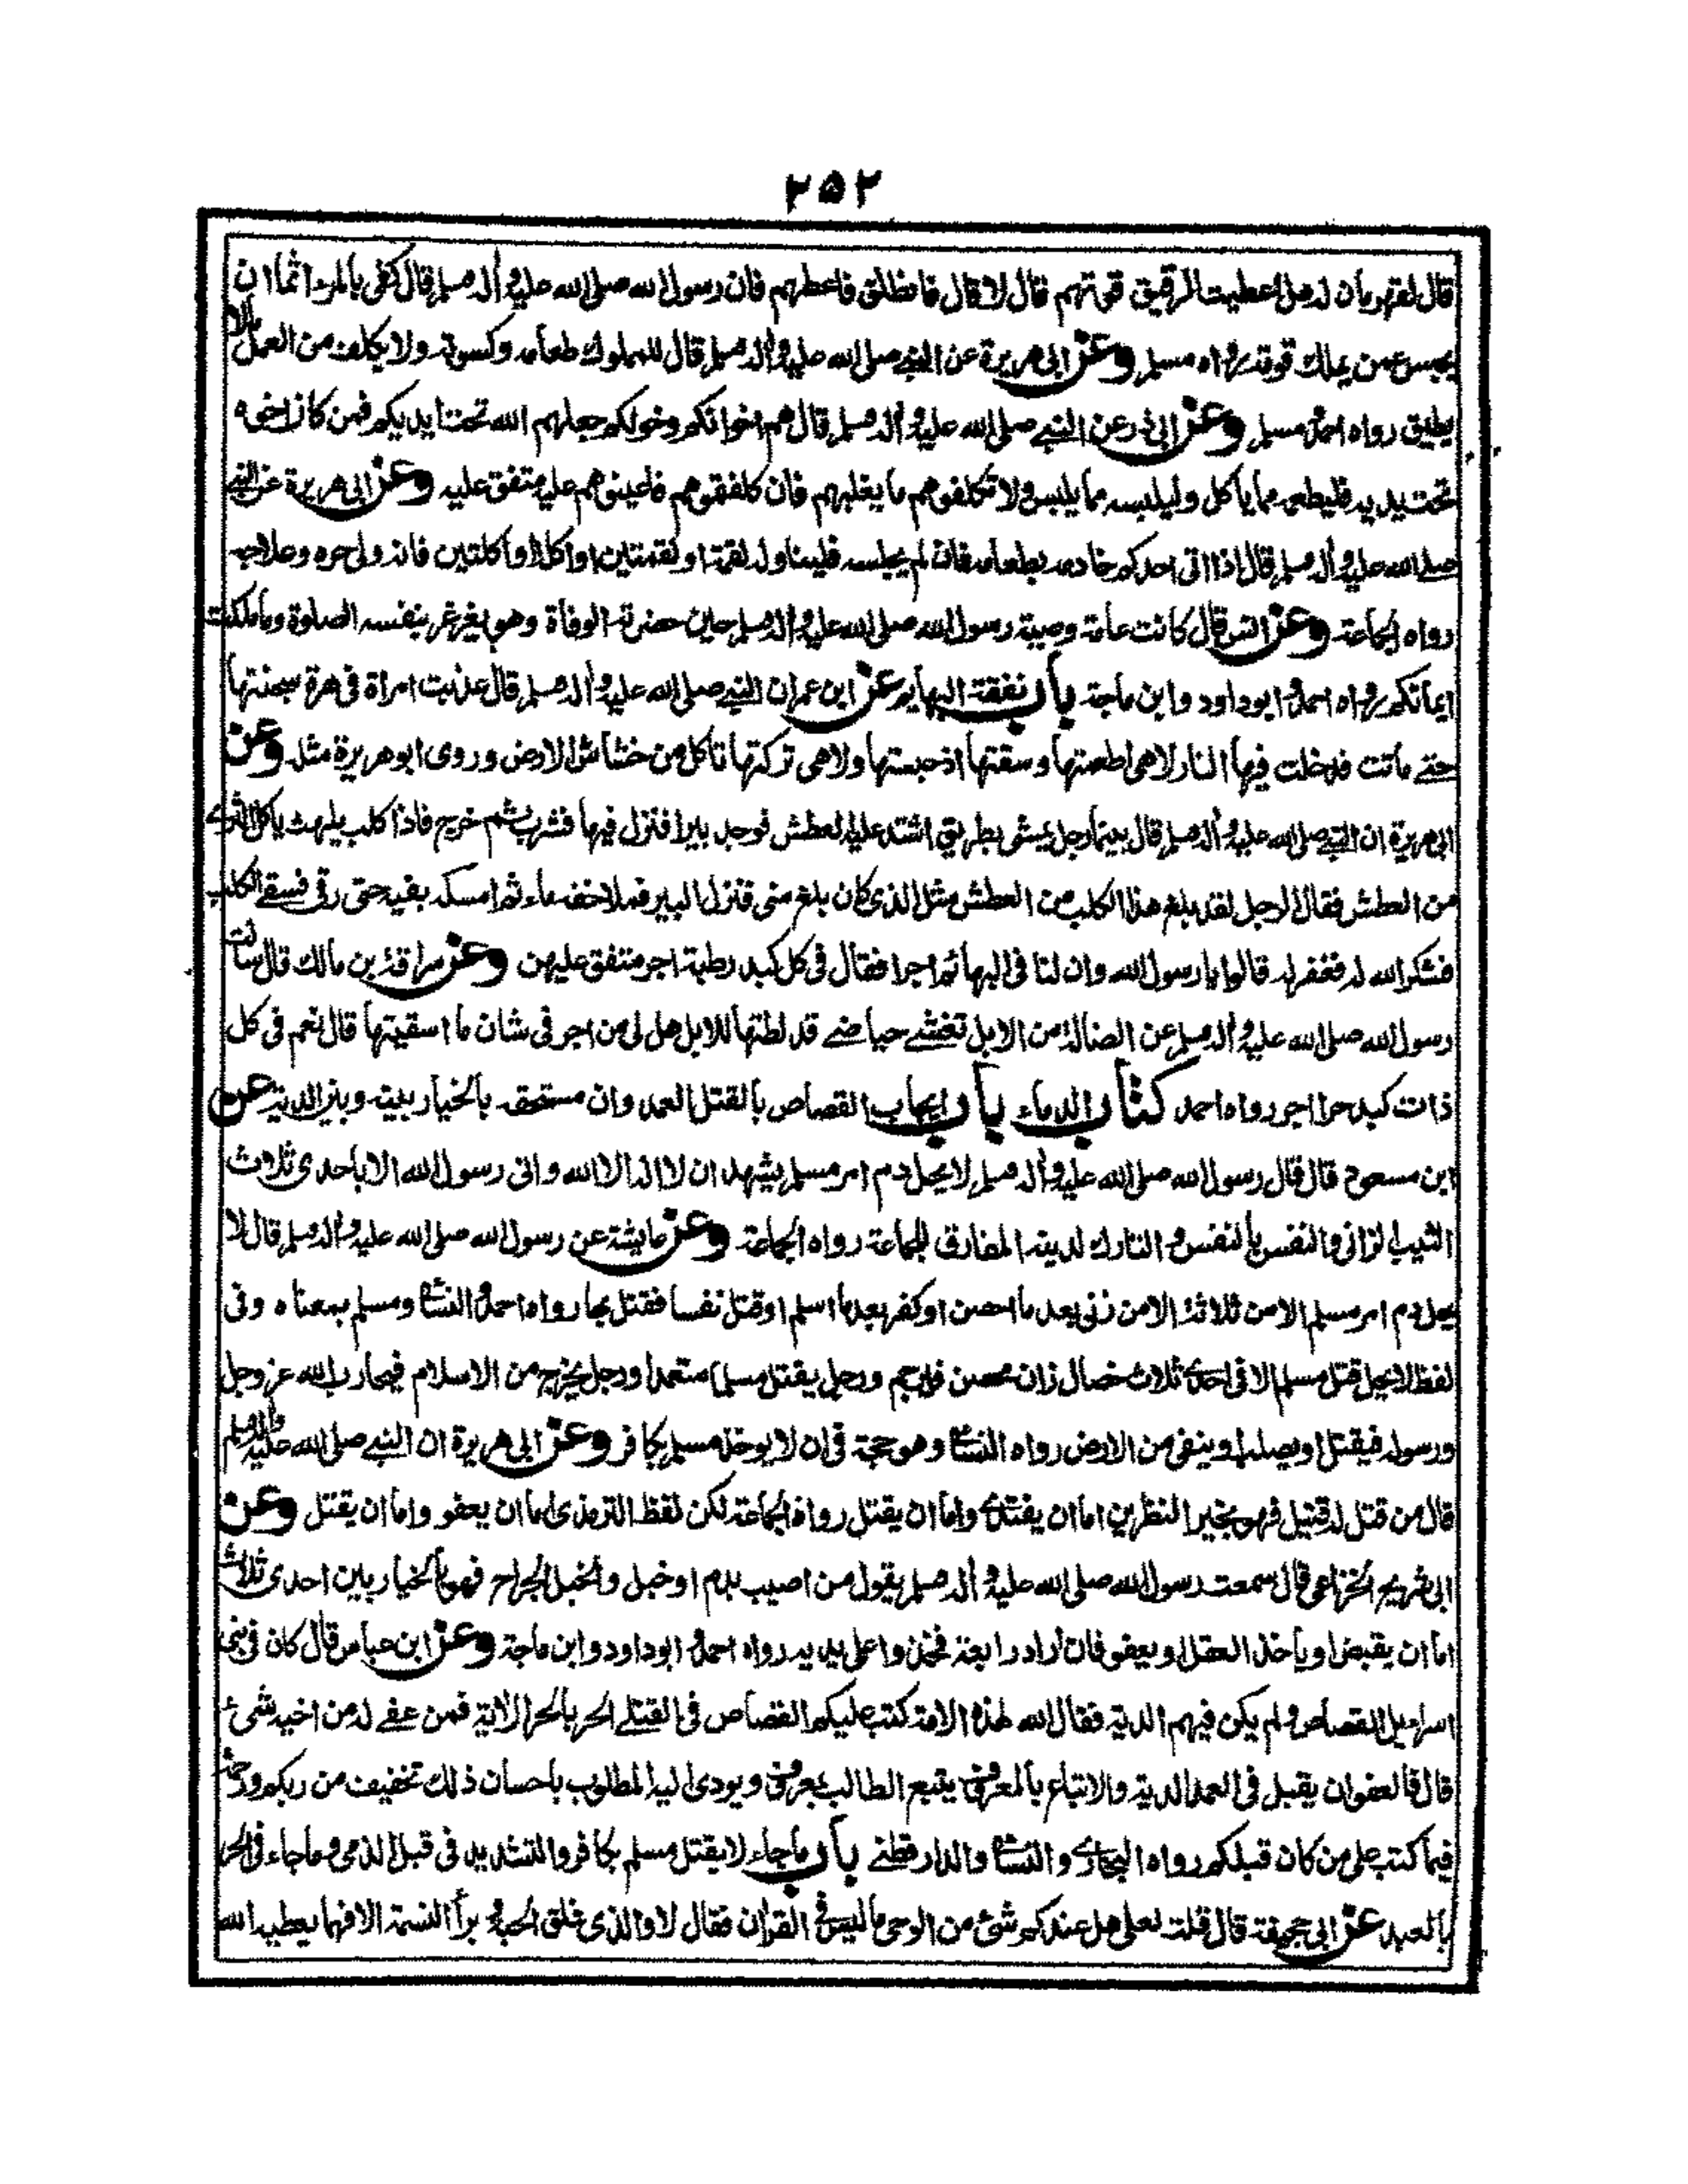 ٢٥٢
قال لقهرمان له هل اعطيت الرقيق قوتهم قال لا قال فانطلق فاعطهم فان رسول الله صلى الله عليه وأله وسلم قال كفى بالمرء اثما ان
يحبس عمن يملك قوته رواه مسلم وعن ابى هريرة عن النبى صلى الله عليه وأله وسلم قال للمملوك طعامه وكسوته ولا يكلف من العمل مالا
يطيق رواه احمد ومسلم وعن ابى ذر عن النبى صلى الله عليه وأله وسلم قال هم اخوانكم وخولكم جعلهم الله تحت ايديكم فمن كان اخوه
تحت يديه فليطعمه مما ياكل وليلبسه مما يلبس ولا تكلفوهم ما يغلبهم فان كلفتموهم فاعينوهم عليه متفق عليه وعن ابى هريرة عن النبى
صلى الله عليه وأله وسلم قال اذا اتى احدكم خادمه بطعامه فان لم يجلسه فليناوله لقمة او لقمتين او اكلة او اكلتين فانه ولى حره وعلاجه
رواه الجماعة وعن انس قال كانت عامة وصية رسول الله صلى الله عليه وأله وسلم حين حضرته الوفاة وهو يغرغر بنفسه الصلوة وما ملكت
ايمانكم رواه احمد وابو داود وابن ماجة باب نفقة البهايم عن ابن عمر ان النبى صلى الله عليه وأله وسلم قال عذبت امراة فى هرة سجنتها
حتى ماتت فدخلت فيها النار لا هى اطعمتها وسقتها اذ حبستها ولا هى تركتها تاكل من خشاش الارض وروى ابو هريرة مثله وعن
ابى هريرة ان النبى صلى الله عليه وأله وسلم قال بينما رجل يمشى بطريق اشتد عليه العطش فوجد بيرا فنزل فيها فشرب ثم خرج فاذا كلب يلهث ياكل الثرى
من العطش فقال الرجل لقد بلغ هذا الكلب من العطش مثل الذى كان بلغ منى فنزل البير فملا خفه ماء ثم امسكه بفيه حتى رقى فسقى الكلب
فشكر الله له فغفر له قالوا يا رسول الله وان لنا فى البهائم اجرا فقال فى كل كبد رطبة اجر متفق عليهن وعن سراقة بن مالك قال سالت
رسول الله صلى الله عليه وأله وسلم عن الضالة من الابل تغشى حياضى قد لطتها للابل هل لى من اجر فى شان ما اسقيتها قال نعم فى كل
ذات كبد حرا اجر رواه احمد كتاب الدماء باب ايجاب القصاص بالقتل العمد وان مستحقه بالخيار بينه وبين الدية عن
ابن مسعود قال قال رسول الله صلى الله عليه وأله وسلم لا يحل دم امر مسلم يشهد ان لا اله الا الله وانى رسول الله الا باحدى ثلاث
الثيب الزانى والنفس بالنفس والتارك لدينه المفارق للجماعة رواه الجماعة وعن عايشة عن رسول الله صلى الله عليه وأله وسلم قال لا
يحل دم امر مسلم الا من ثلاثة الا من زنى بعد ما احصن او كفر بعد ما اسلم او قتل نفسا فقتل بها رواه احمد والنسائى ومسلم بمعناه وفى
لفظ لا يحل قتل مسلم الا فى احدى ثلاث خصال زان محصن فيرجم ورجل يقتل مسلما متعمدا ورجل يخرج من الاسلام فيحارب الله عز وجل
ورسوله فيقتل او يصلب او ينفى من الارض رواه النسائى وهو حجة فى ان لا يوخذ مسلم بكافر وعن ابى هريرة ان النبى صلى الله عليه وأله وسلم
قال من قتل له قتيل فهو بخير النظرين اما ان يفتدى واما ان يقتل رواه الجماعة لكن لفظ الترمذى اما ان يعفو واما ان يقتل وعن
ابى شريح الخزاعى قال سمعت رسول الله صلى الله عليه وأله وسلم يقول من اصيب بدم او خبل والخبل الجراح فهو بالخيار بين احدى ثلاث
اما ان يقبض او ياخذ العقل او يعفو فان اراد رابعة فخذوا على يديه رواه احمد وابو داود وابن ماجة وعن ابن عباس قال كان فى بنى
اسرايل القصاص ولم يكن فيهم الدية فقال الله لهذه الامة كتب عليكم القصاص فى القتلى الحر بالحر الاية فمن عفى له من اخيه شىء
قال فالعفو ان يقبل فى العمد الدية والاتباع بالمعروف يتبع الطالب بمعروف ويودى اليه المطلوب باحسان ذلك تخفيف من ربكم ورحمة
فيما كتب على من كان قبلكم رواه البخارى والنسائى والدارقطنى باب ما جاء لا يقتل مسلم بكافر والتشديد فى قتل الذمى وما جاء فى الحر
بالعبد عن ابى جحيفة قال قلت لعلى هل عندكم شئ من الوحى ما ليس فى القران فقال لا والذى فلق الحبة وبرأ النسمة الا فهما يعطيه الله